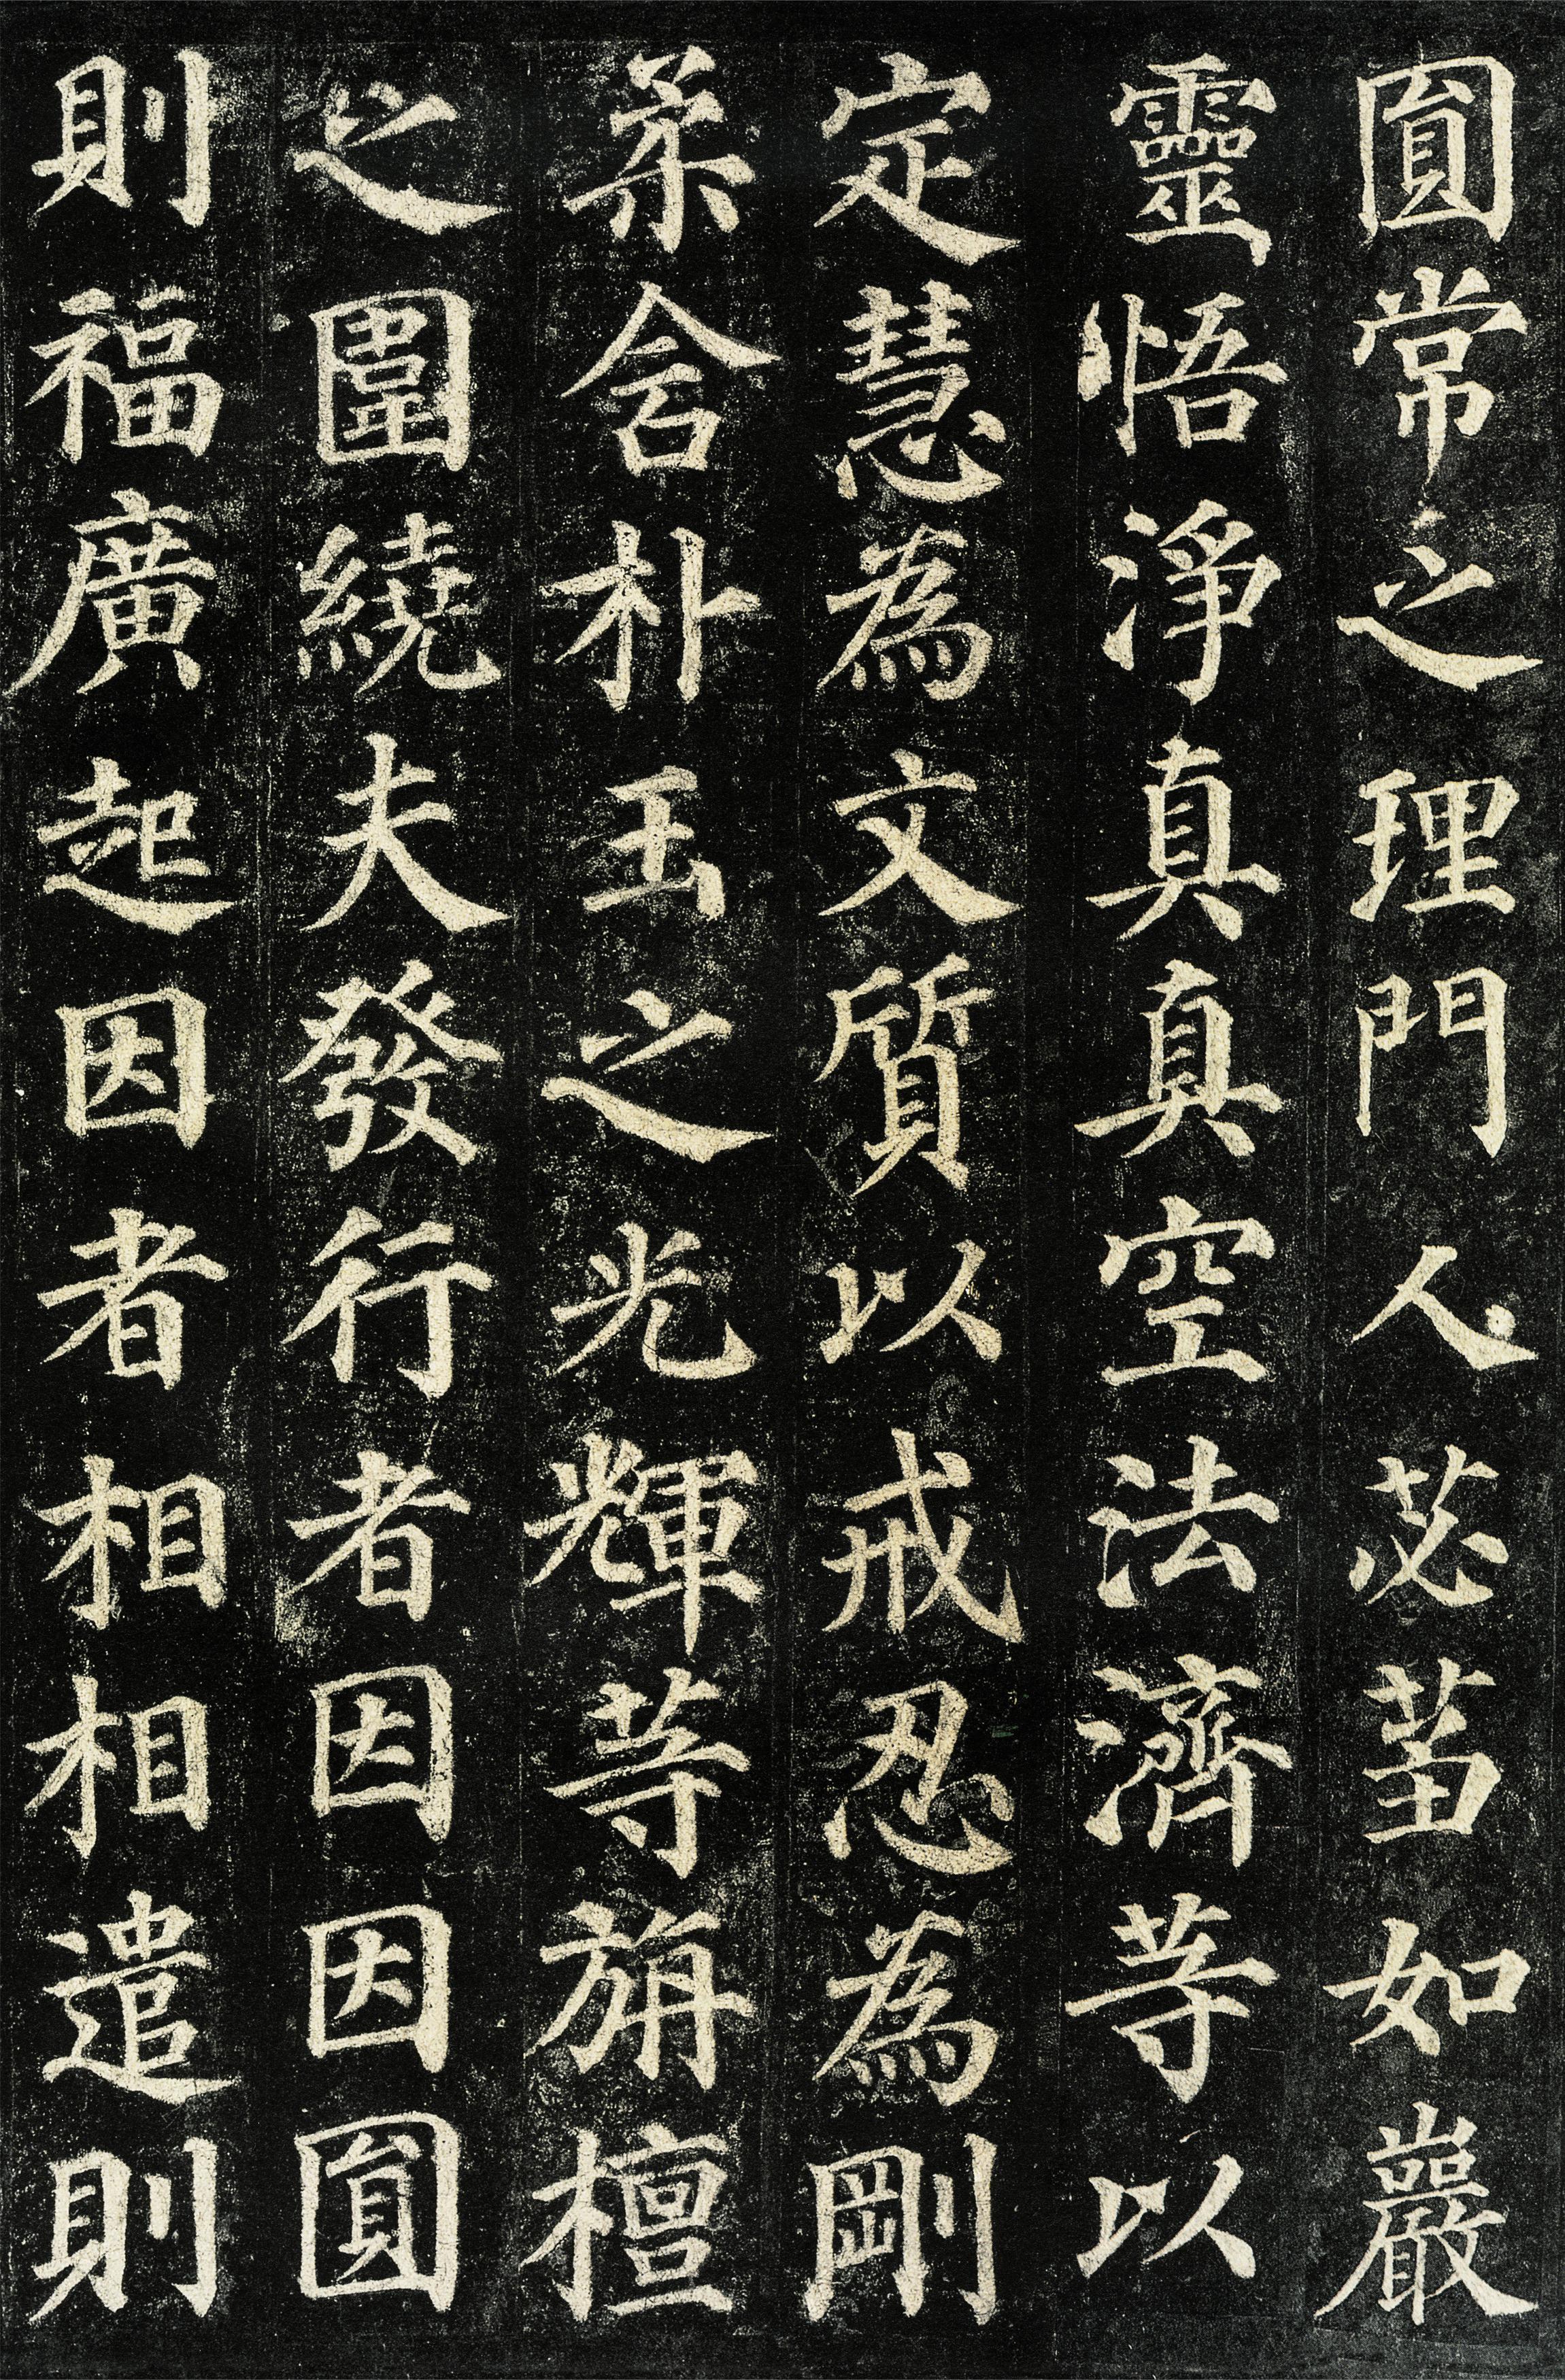 圎常之理門人苾蒭如巖
靈悟淨真真空法濟等以
定慧為文質以戒忍為剛
柔含朴玉之光輝等旃檀
之圍繞夫發行者因因圎
則福廣起因者相相遣則